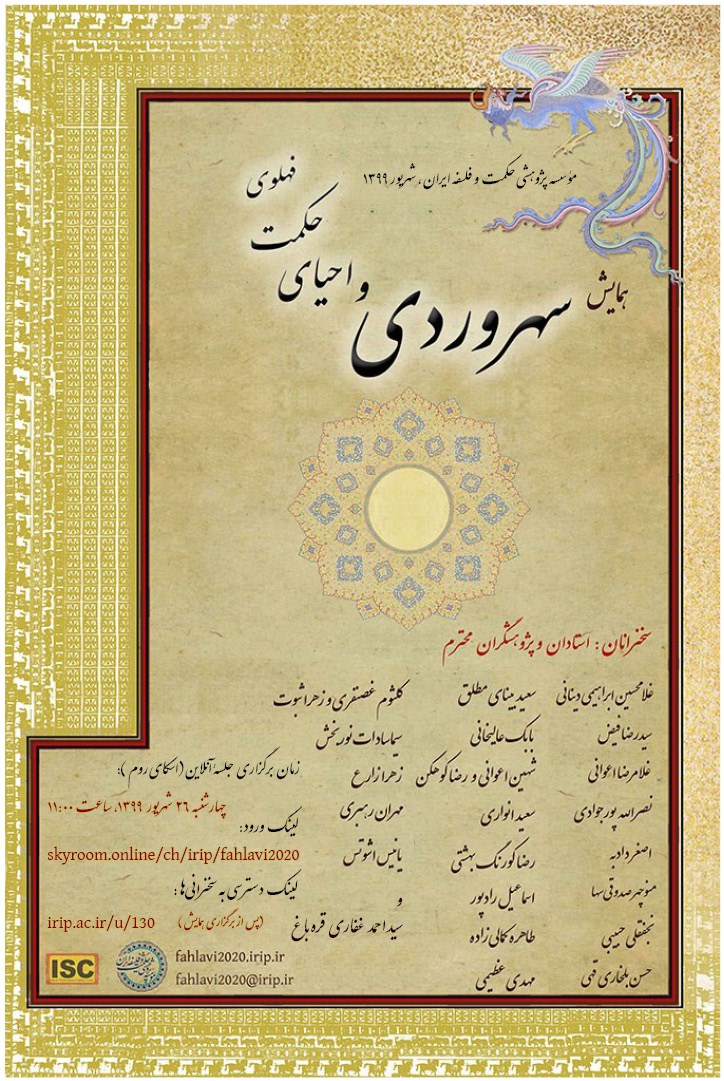 مؤسسه پژوهشی حکمت و فلسفه ایران، شهریور ۱۳۹۹
همایش
سهروردی
و احیای
حکمت
فهلوی
سخنرانان: استادان و پژوهشگران محترم
غلامحسین ابراهیمی دینانی
سیدرضا فیض
غلامرضا اعوانی
نصرالله پورجوادی
اصغر دادبه
منوچهر صدوقی سها
نجفقلی حبیبی
حسن بلخاری قهی
سعید بینای مطلق
بابک عالیخانی
شهین اعوانی و رضا کوهکن
سعید انواری
رضا کورنگ بهشتی
اسماعیل رادپور
طاهره کمالی زاده
مهدی عظیمی
کلثوم غضنفری و زهرا ثبوت
سیما سادات نوربخش
زهرا زارع
مهران رهبری
یانیس اشوتس
و
سید احمد غفاری قره باغ
زمان برگزاری جلسهٔ آنلاین (اسکای روم):
چهارشنبه ۲۶ شهریور ۱۳۹۹، ساعت ۱۱:۰۰
لینک ورود:
skyroom.online/ch/irip/fahlavi2020
لینک دسترسی به سخنرانی‌ها:
(پس از برگزاری همایش) irip.ac.ir/u/130
fahlavi2020.irip.ir
fahlavi2020@irip.ir
ISC